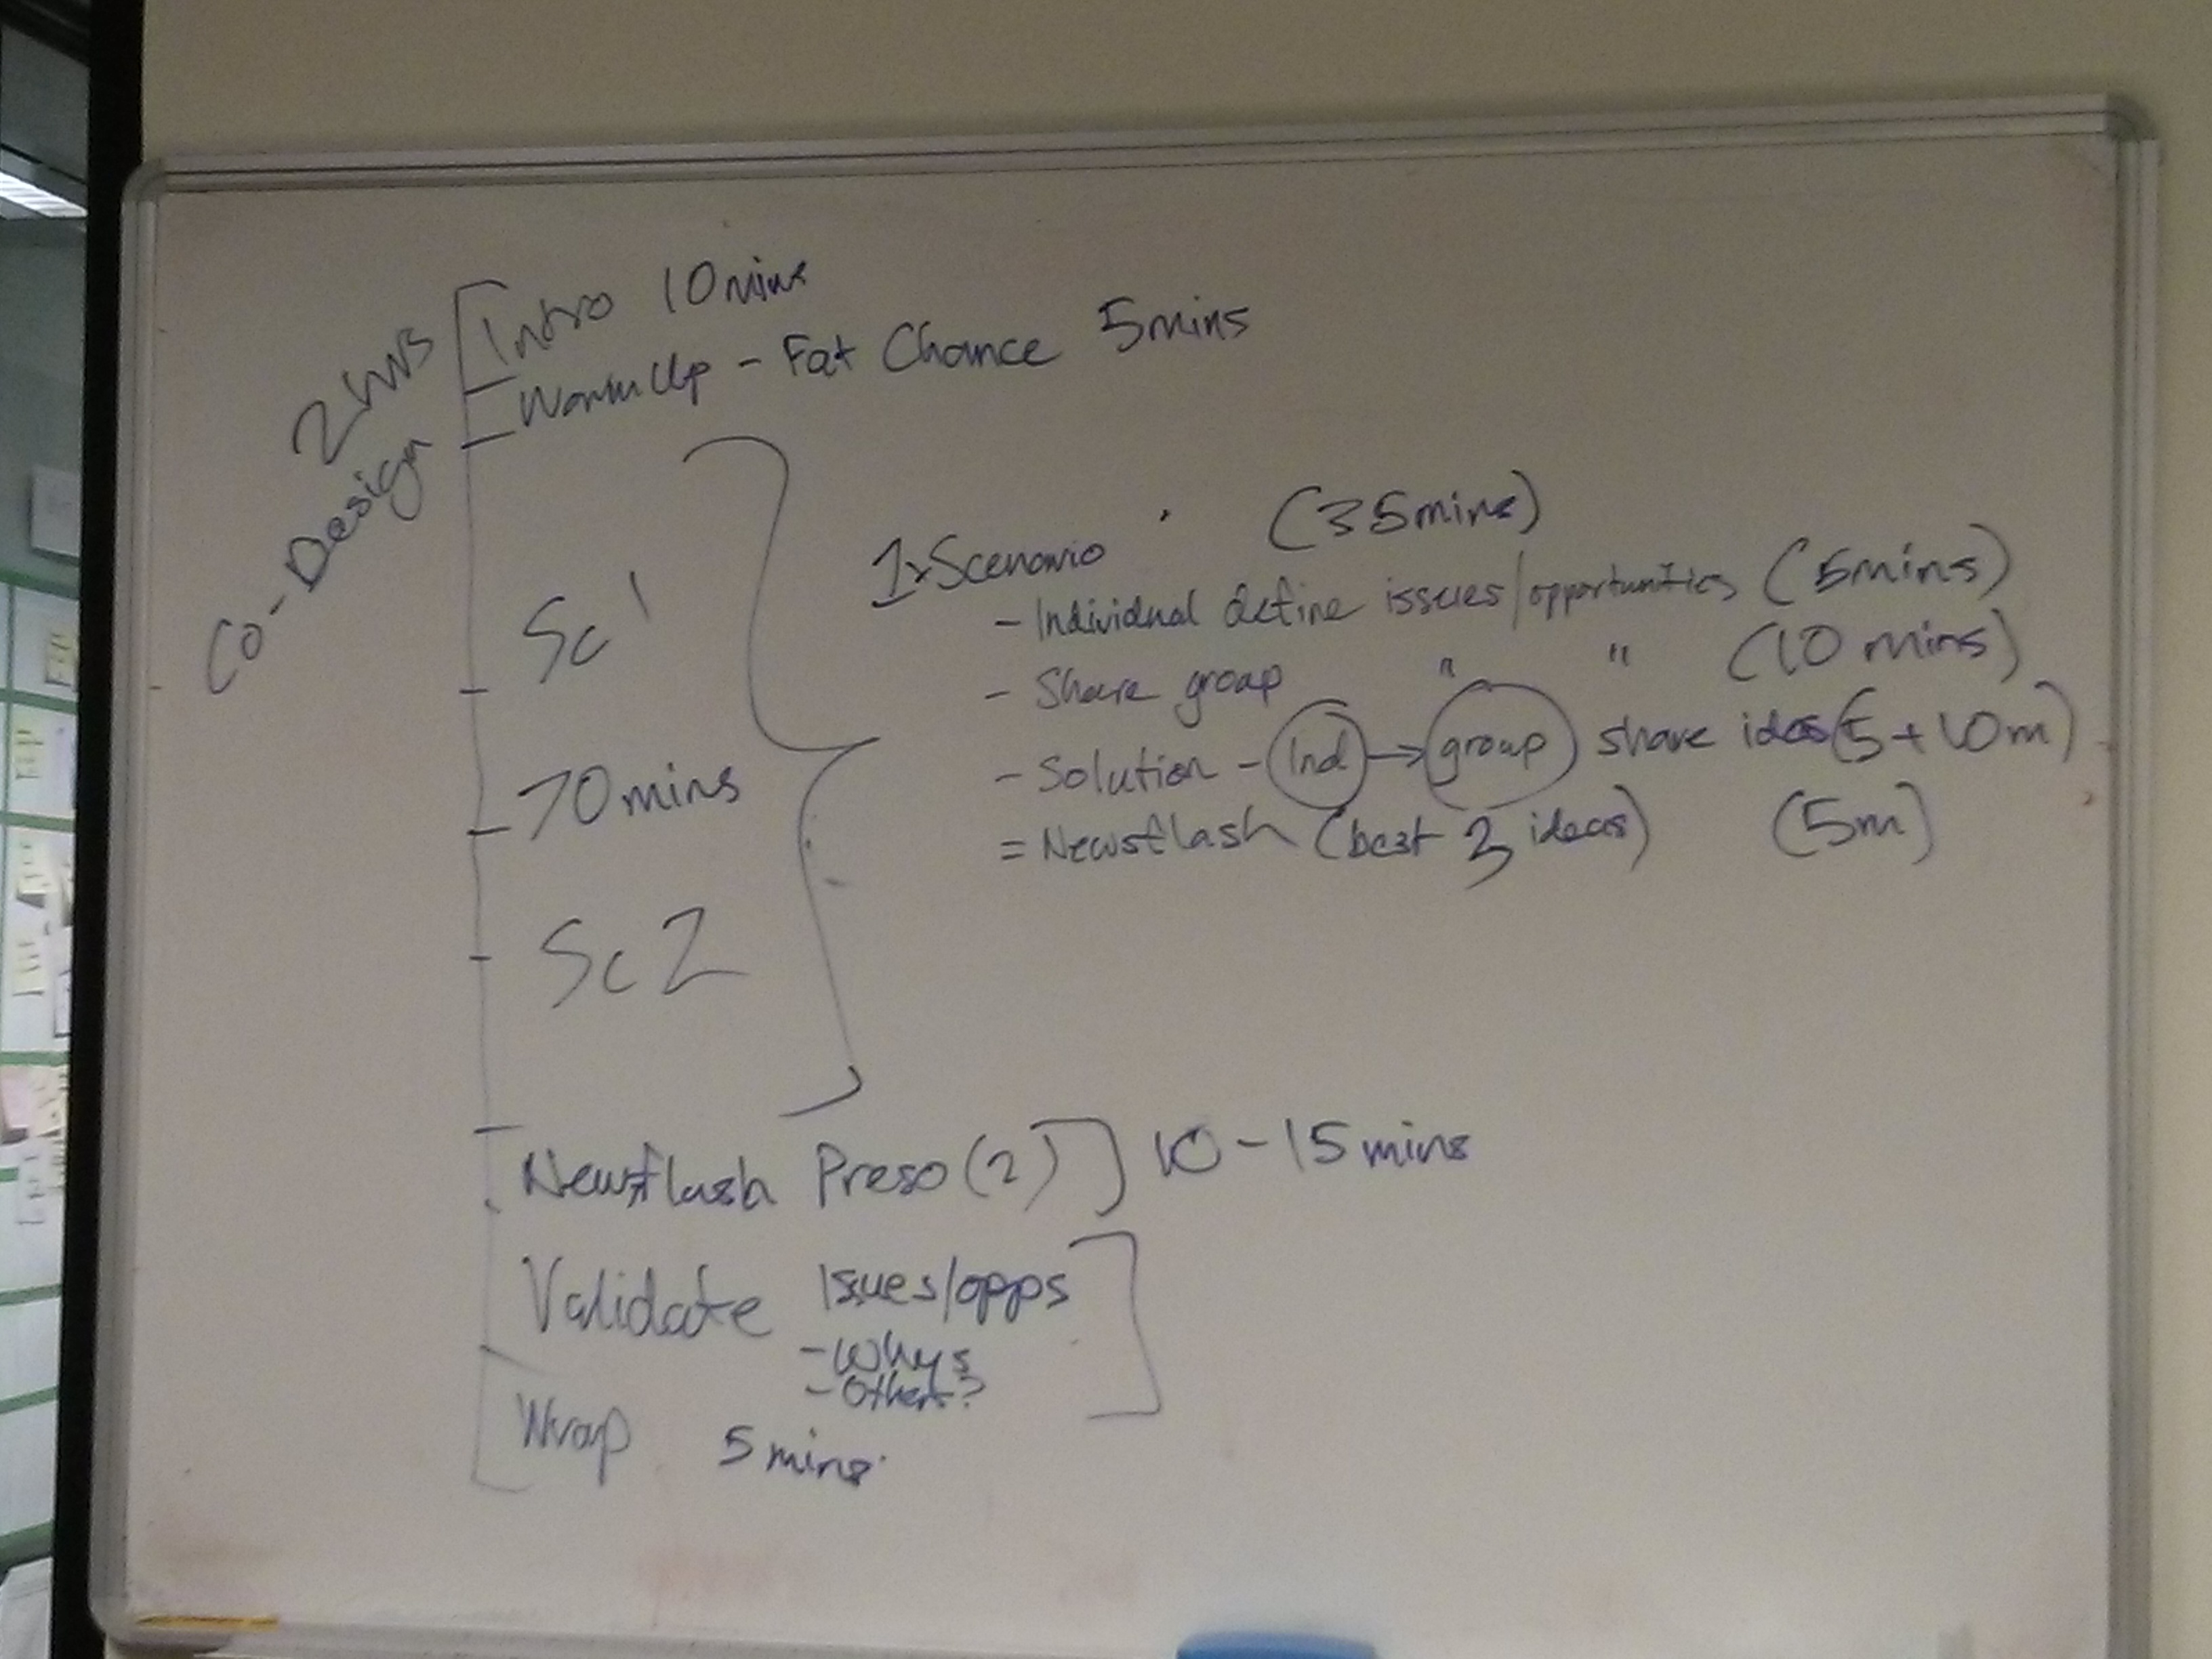 2 hrs
Co-Design
Intro 10 mins
Warm Up - Fat Chance 5 mins
Sc 1
70 mins
Sc 2
1 x Scenario (35 mins)
- Individual define issues/opportunities (5 mins)
- Share group " " (10 mins)
- Solution - Ind → group share ideas (5 + 10 m)
= Newsflash (best 3 ideas) (5m)
Newsflash Preso (2) 10 - 15 mins
Validate Issues/opps
- Whys
- Other?
Wrap 5 mins